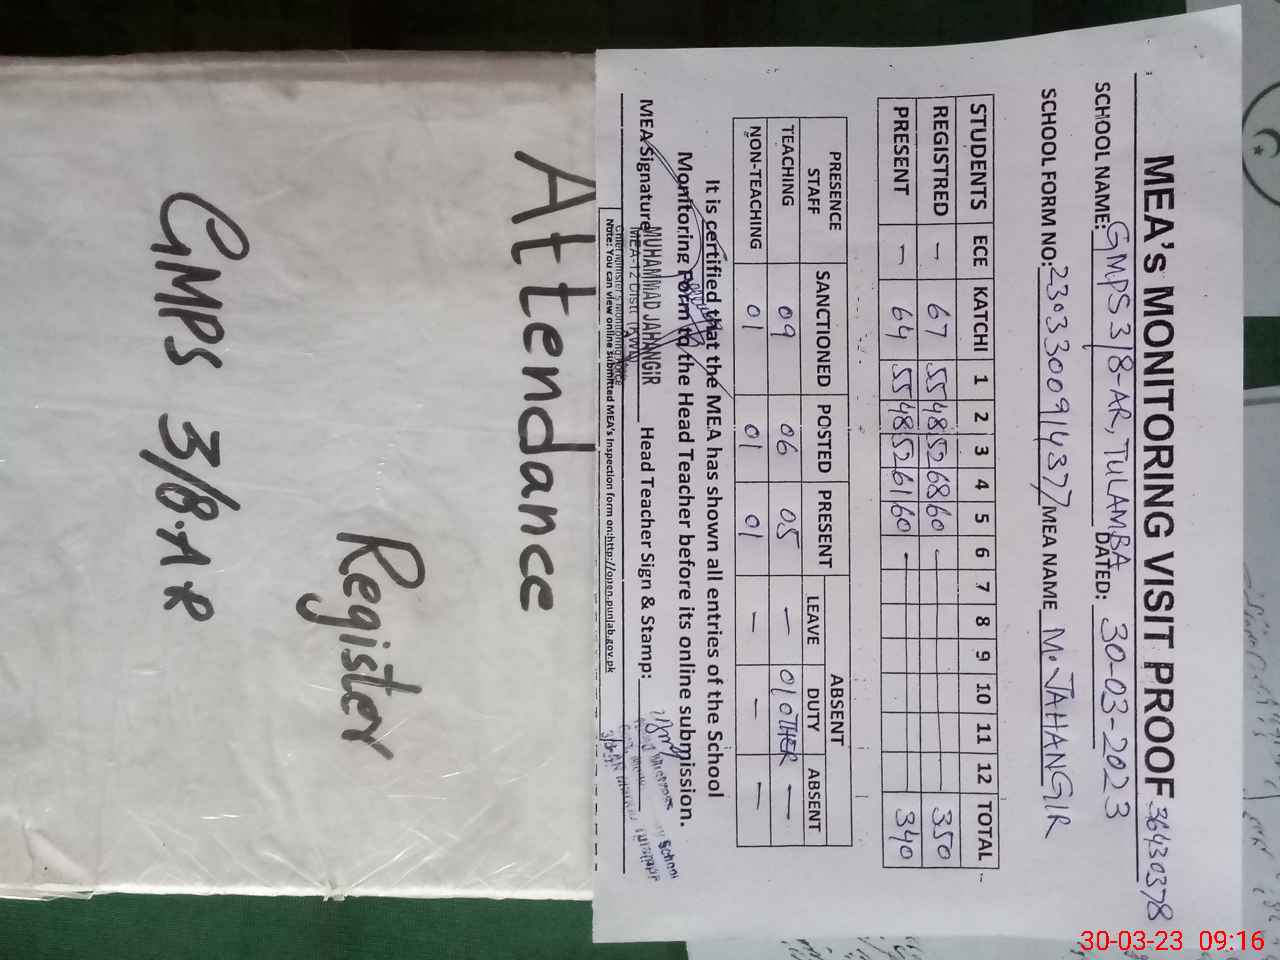 MEA's MONITORING VISIT PROOF 36430378
SCHOOL NAME: GMPS 3/8-AR, TULAMBA DATED: 30-03-2023
SCHOOL FORM NO: 230330091437 MEA NAME M. JAHANGIR
STUDENTS ECE KATCHI 1 2 3 4 5 6 7 8 9 10 11 12 TOTAL
REGISTRED — 67 55 48 52 68 60 — 350
PRESENT — 64 55 48 52 61 60 — 340
PRESENCE STAFF SANCTIONED POSTED PRESENT ABSENT
LEAVE DUTY ABSENT
TEACHING 09 06 05 — 01 OTHER —
NON-TEACHING 01 01 01 — — —
It is certified that the MEA has shown all entries of the School
Monitoring Form to the Head Teacher before its online submission.
MEA Signature Head Teacher Sign & Stamp:
MUHAMMAD JAHANGIR
MEA-12 Distt
Chief Minister's Monitoring Force
Note: You can view online submitted MEA's Inspection form on:http://open.punjab.gov.pk
Attendance
Register
GMPS 3/8.AR
30-03-23 09:16